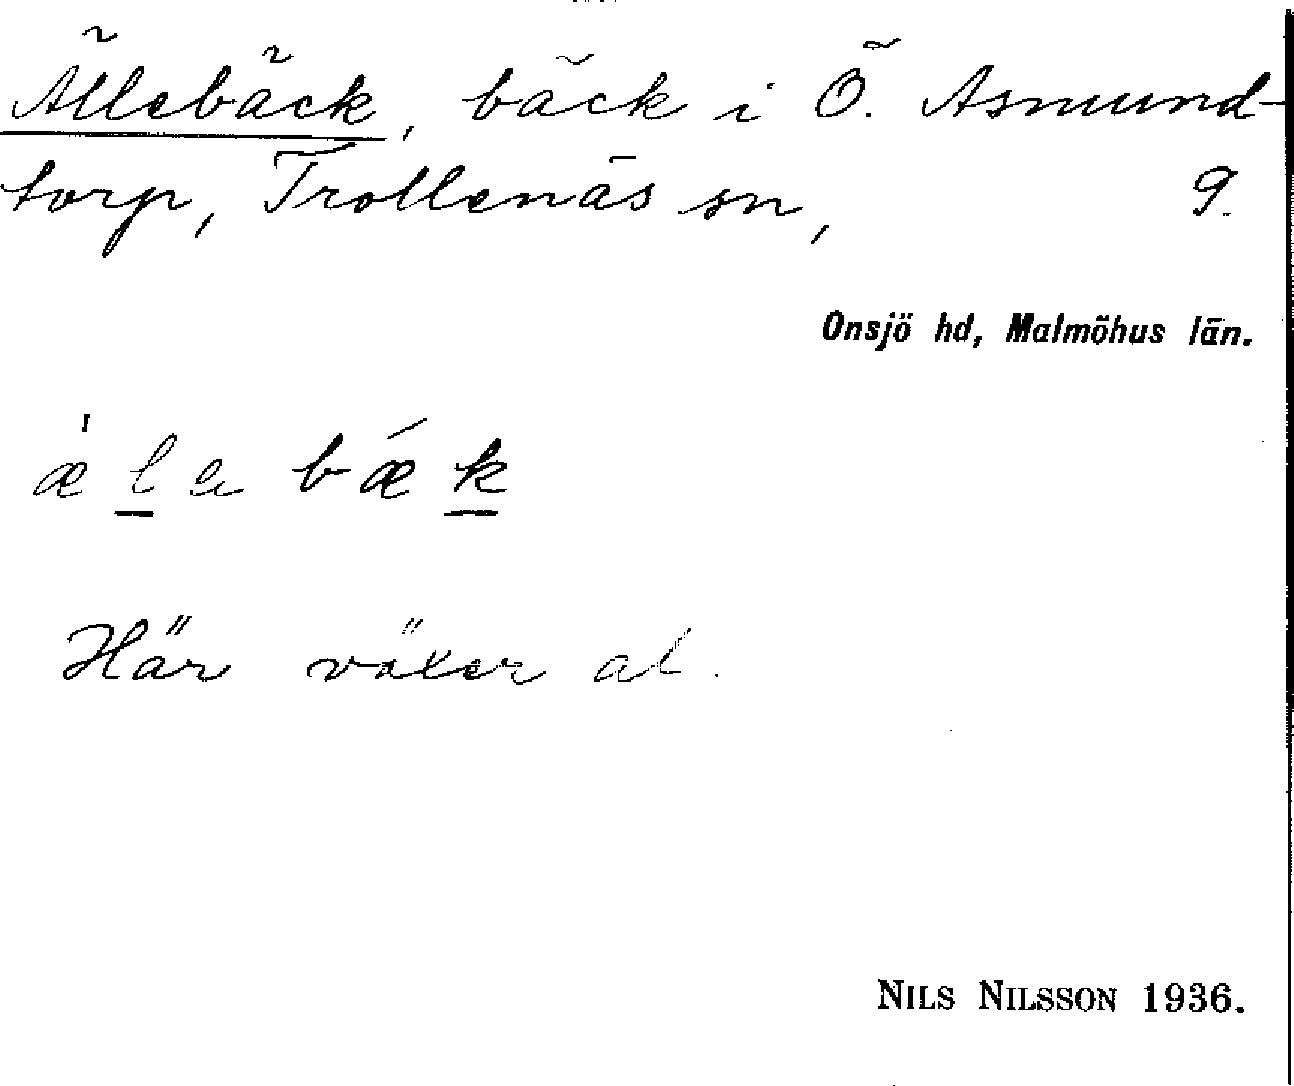 Ällebäck, bäck i Ö. Asmund-
torp, Trollenäs sn, 9.
Onsjö hd, Malmöhus län.
æ̀l̲a bǽk̲
Här växer al.
NILS NILSSON 1936.